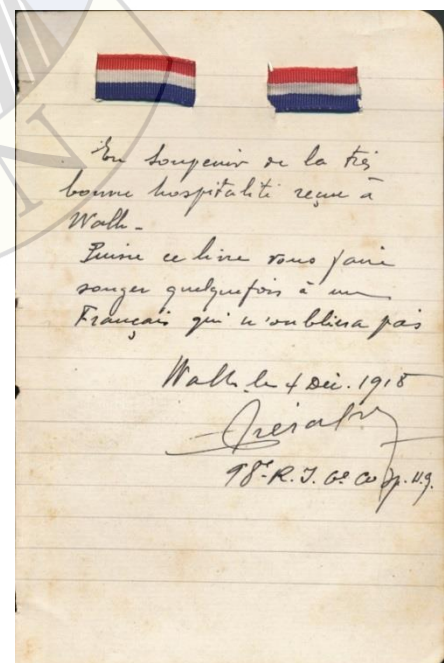 En souvenir de la très
bonne hospitalité reçue à
Walh -
Puisse ce livre vous faire
songer quelquefois à un
Français qui n'oubliera pas
Walh le 4 Déc. 1918
98e R. I.
N